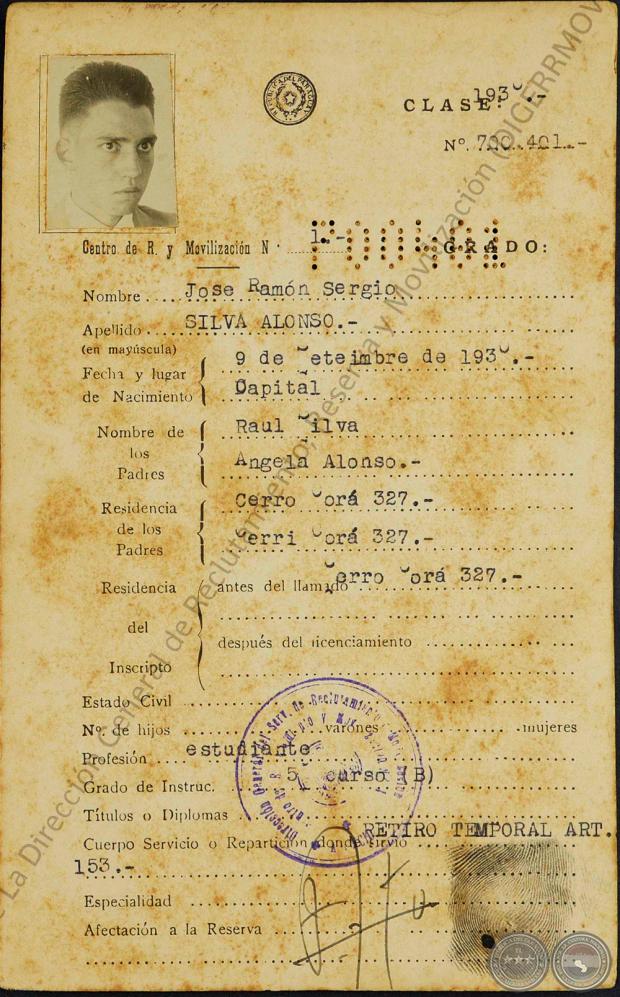 REPUBLICA DEL PARAGUAY
CLASE: 193 .-
Nº. 700.401.-
Centro de R. y Movilización N · 1.- GRADO:
Nombre Jose Ramón Sergio
Apellido SILVA ALONSO.-
(en mayúscula)
Fecha y lugar 9 de eteimbre de 193 .-
de Nacimiento Capital
Nombre de Raul ilva
los
Padres Angela Alonso.-
Residencia Cerro orá 327.-
de los
Padres erri orá 327.-
Residencia antes del llamado erro orá 327.-
del
después del licenciamiento
Inscripto
Estado Civil
Nº. de hijos varones mujeres
Profesión estudiante
Grado de Instruc. 5 curso (B)
Títulos o Diplomas
RETIRO TEMPORAL ART.
Cuerpo Servicio o Repartición donde sirvió
153.-
Especialidad
Afectación a la Reserva
La Dirección General de Reclutamiento, Reserva y Movilización (DIGERRMOV